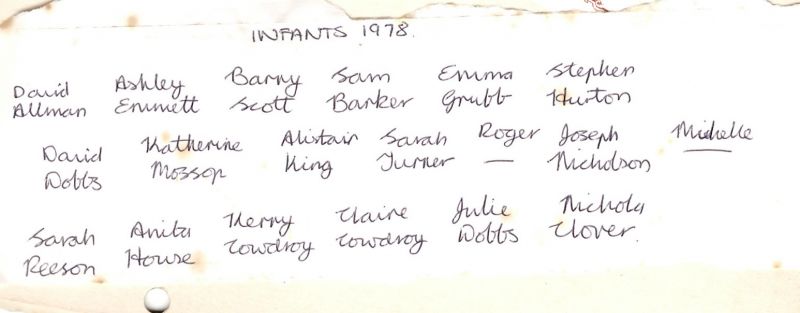 INFANTS 1978.
David Ashley Barry Sam Emma Stephen
Allman Emmett Scott Barker Grubb Hurton
David Katherine Alistair Sarah Roger Joseph Michelle
Dobbs Mossop King Turner — Nicholson —
Sarah Anita Kerry Claire Julie Nichola
Reeson House Cowdroy Cowdroy Dobbs Clover.